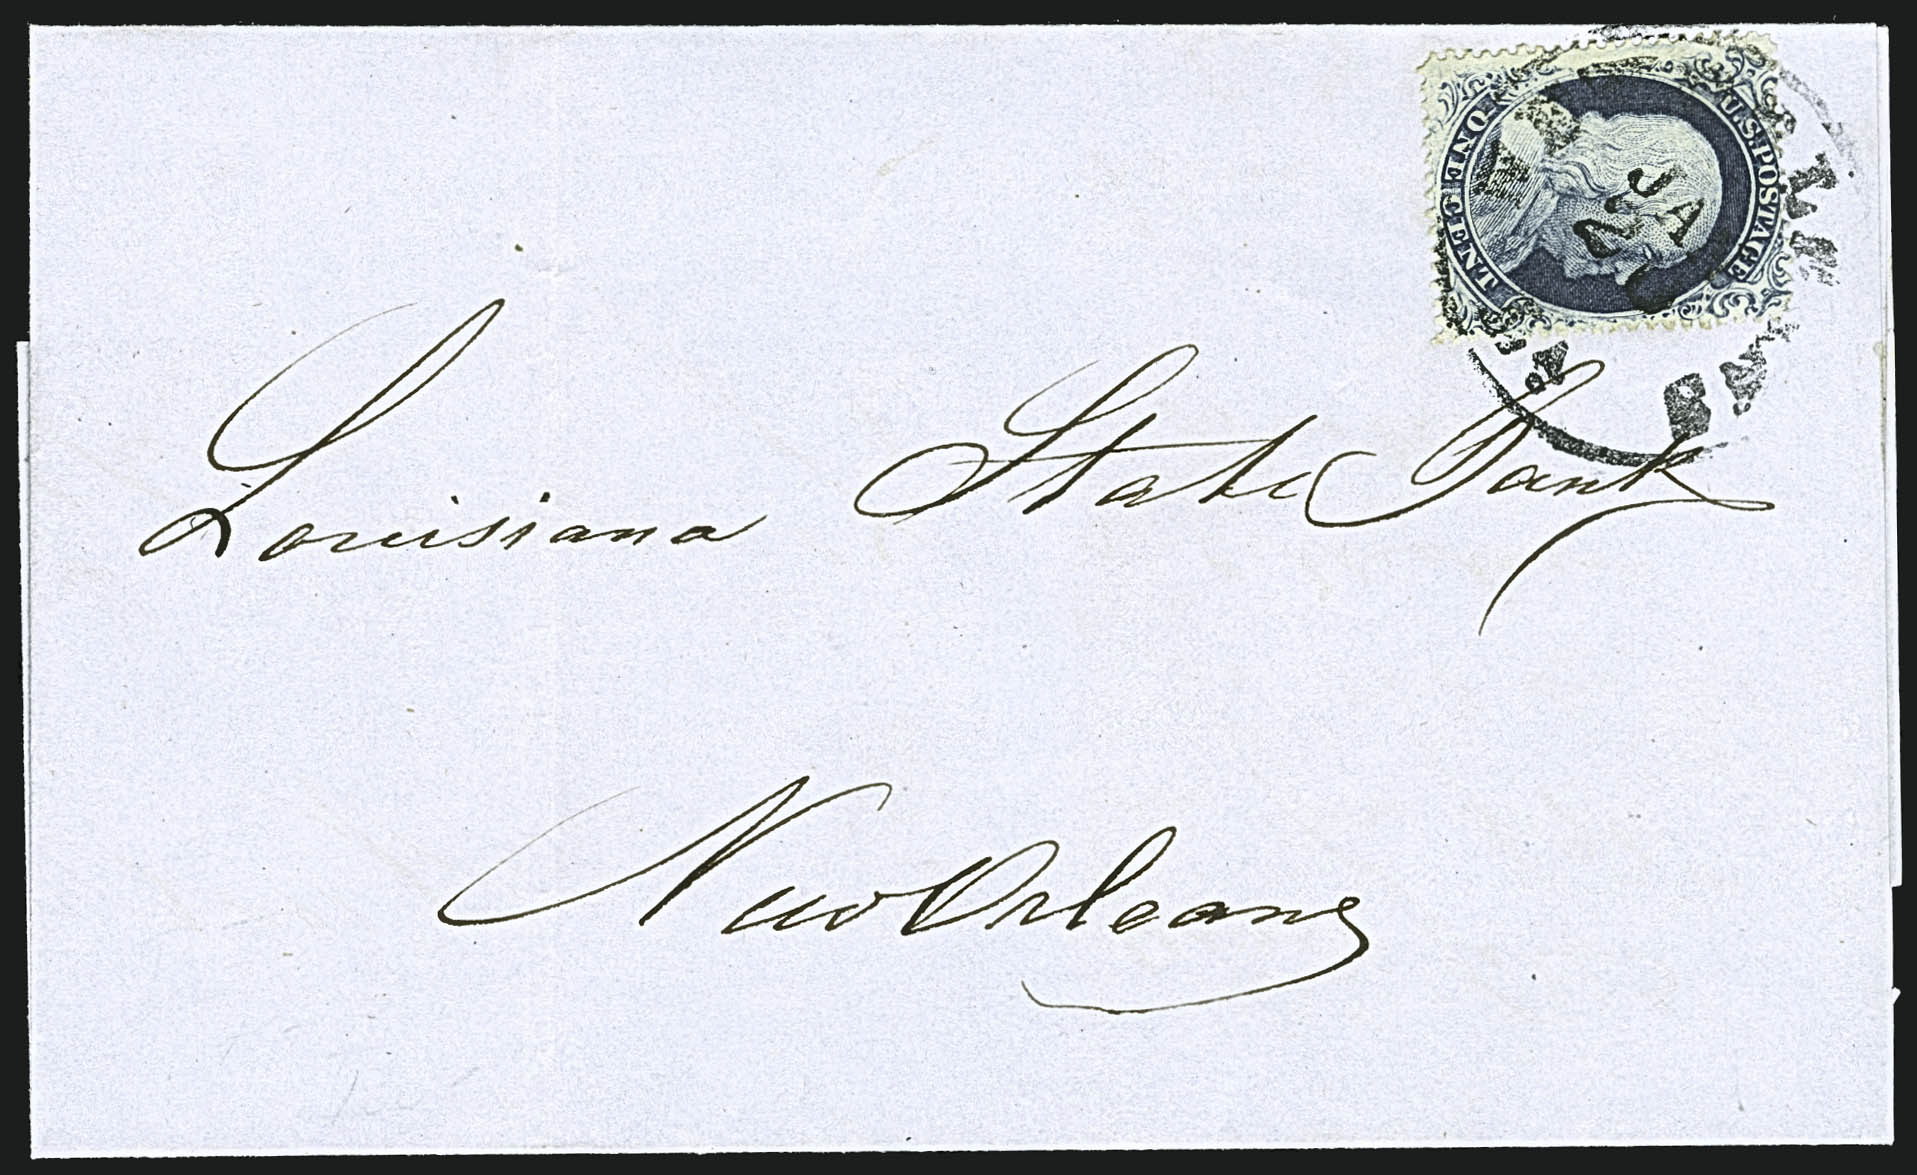 U.S. POSTAGE
ONE CENT.
JA
Louisiana State Bank
New Orleans